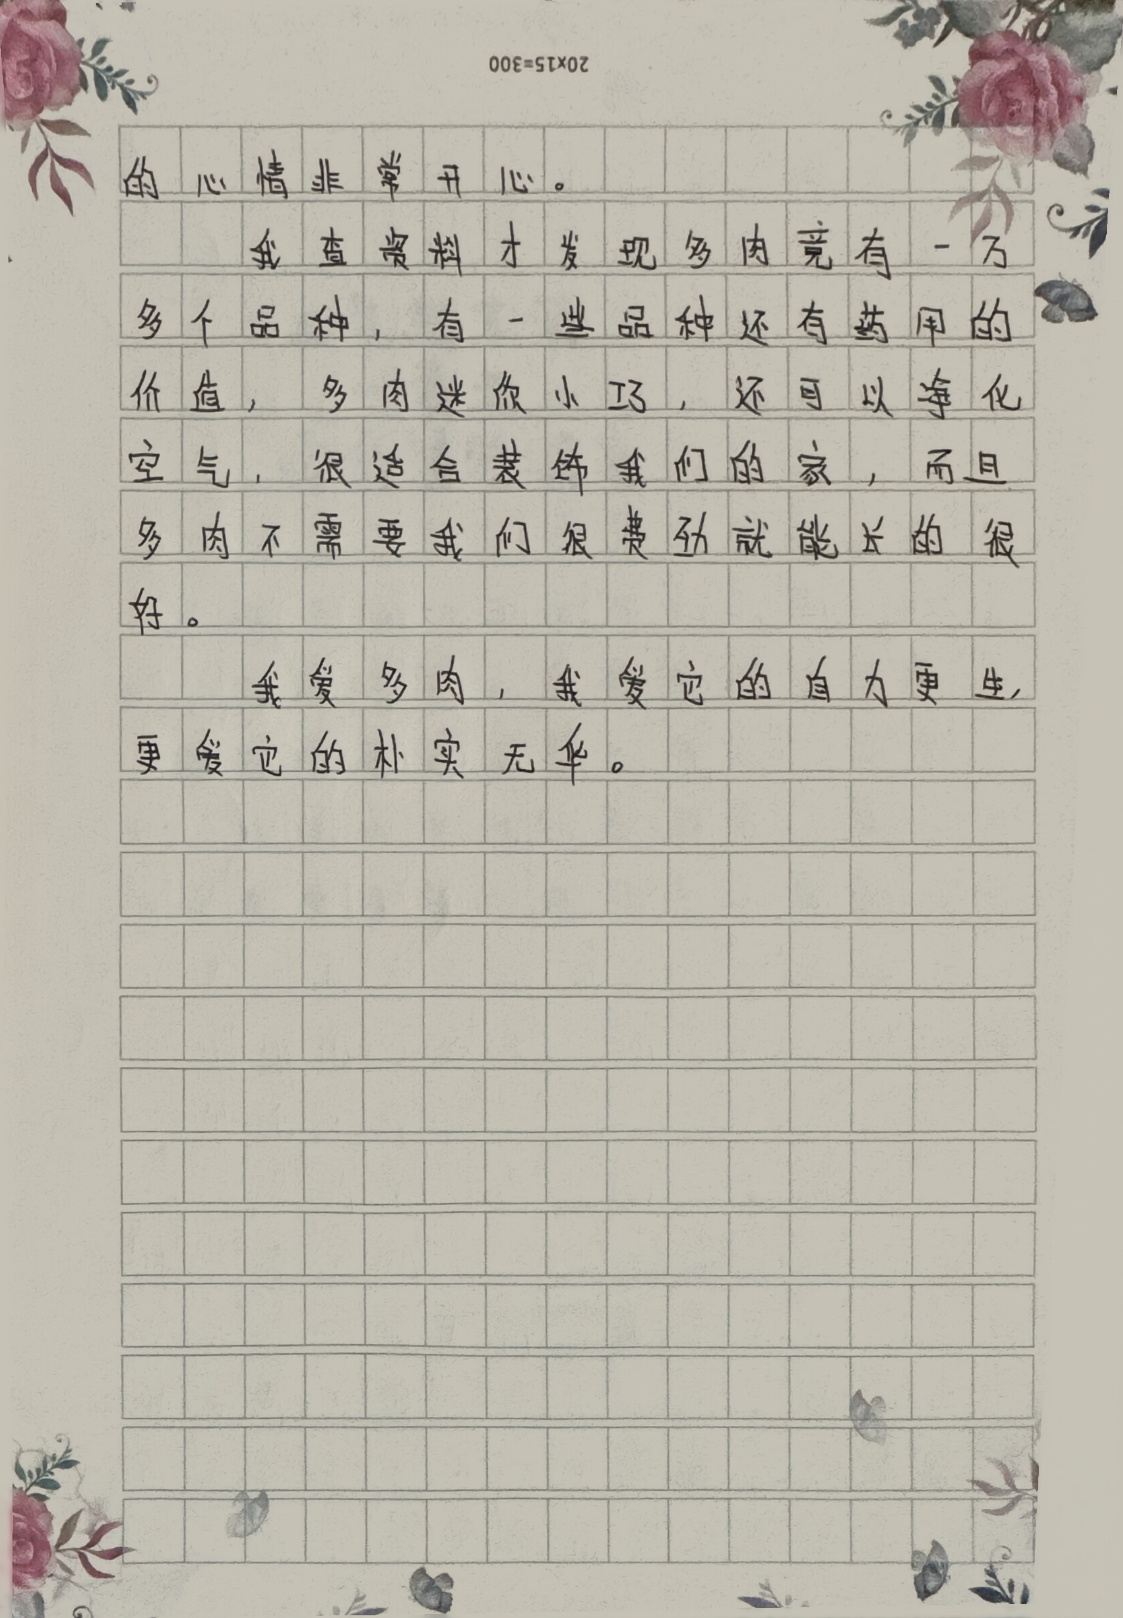 20×15=300
的心情非常开心。
我查资料才发现多肉竟有一万
多个品种，有一些品种还有药用的
价值，多肉迷你小巧，还可以净化
空气，很适合装饰我们的家，而且
多肉不需要我们很费劲就能长的很
好。
我爱多肉，我爱它的自力更生，
更爱它的朴实无华。